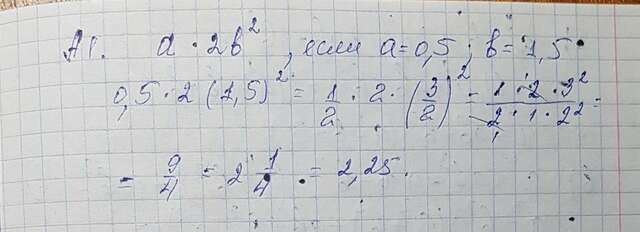 А1. a · 2b², если a=0,5; b=1,5.
0,5 · 2 (1,5)² = 1/2 · 2 · (3/2)² = 1·2·3²/2·1·2² =
= 9/4 = 2 1/4 = 2,25.